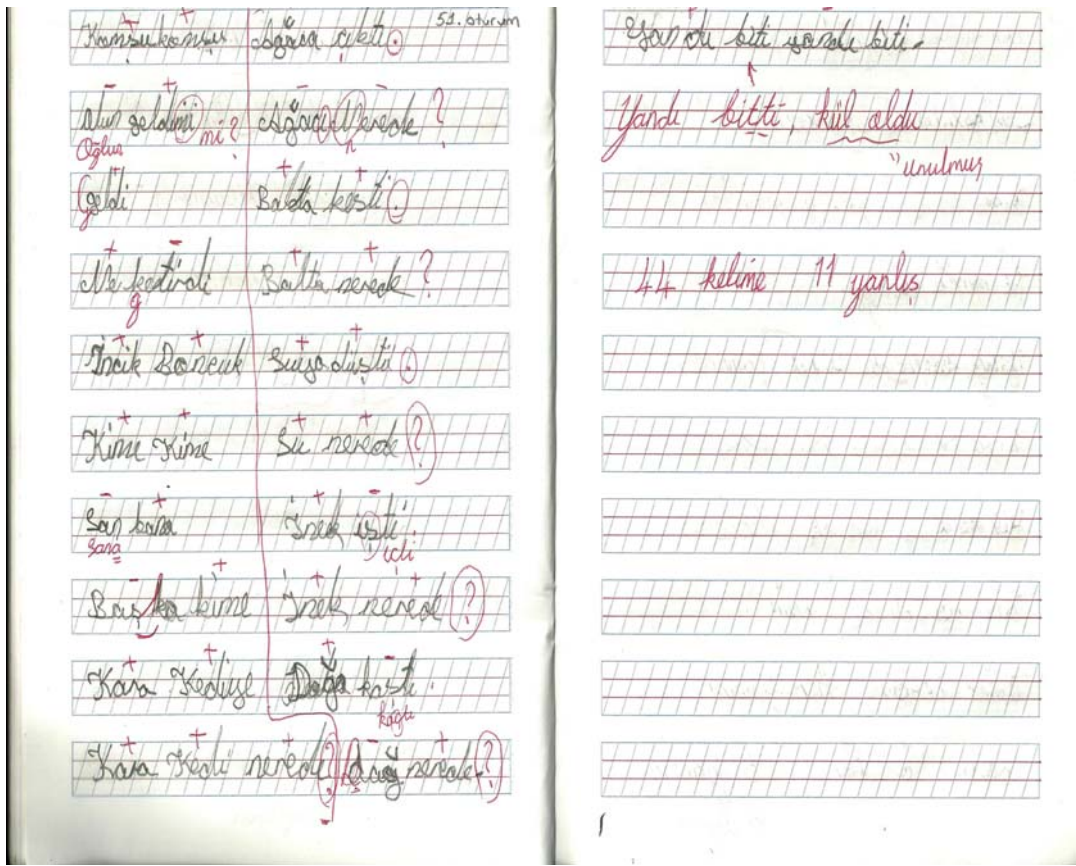 51. oturum
Komşu komşu
olun geldimi mi?
Oğlun
Geldi
Ne kestirdi
g
İncik Boncuk
Kime Kime
San kara
Sana
Başka kime
Kara Kediye
Kara Kedi nerede?
Ağaca çıktı.
Ağaca Nerede?
n
Balta kesti.
Balta nerede?
Suya düştü.
Su nerede?
İnek işti.
içti
İnek nerede?
Dağa kaştı.
kaçtı
dağ nerede?
Yandı biti yandı biti.
Yandı bitti, kül oldu
"unulmuş
44 kelime 11 yanlış